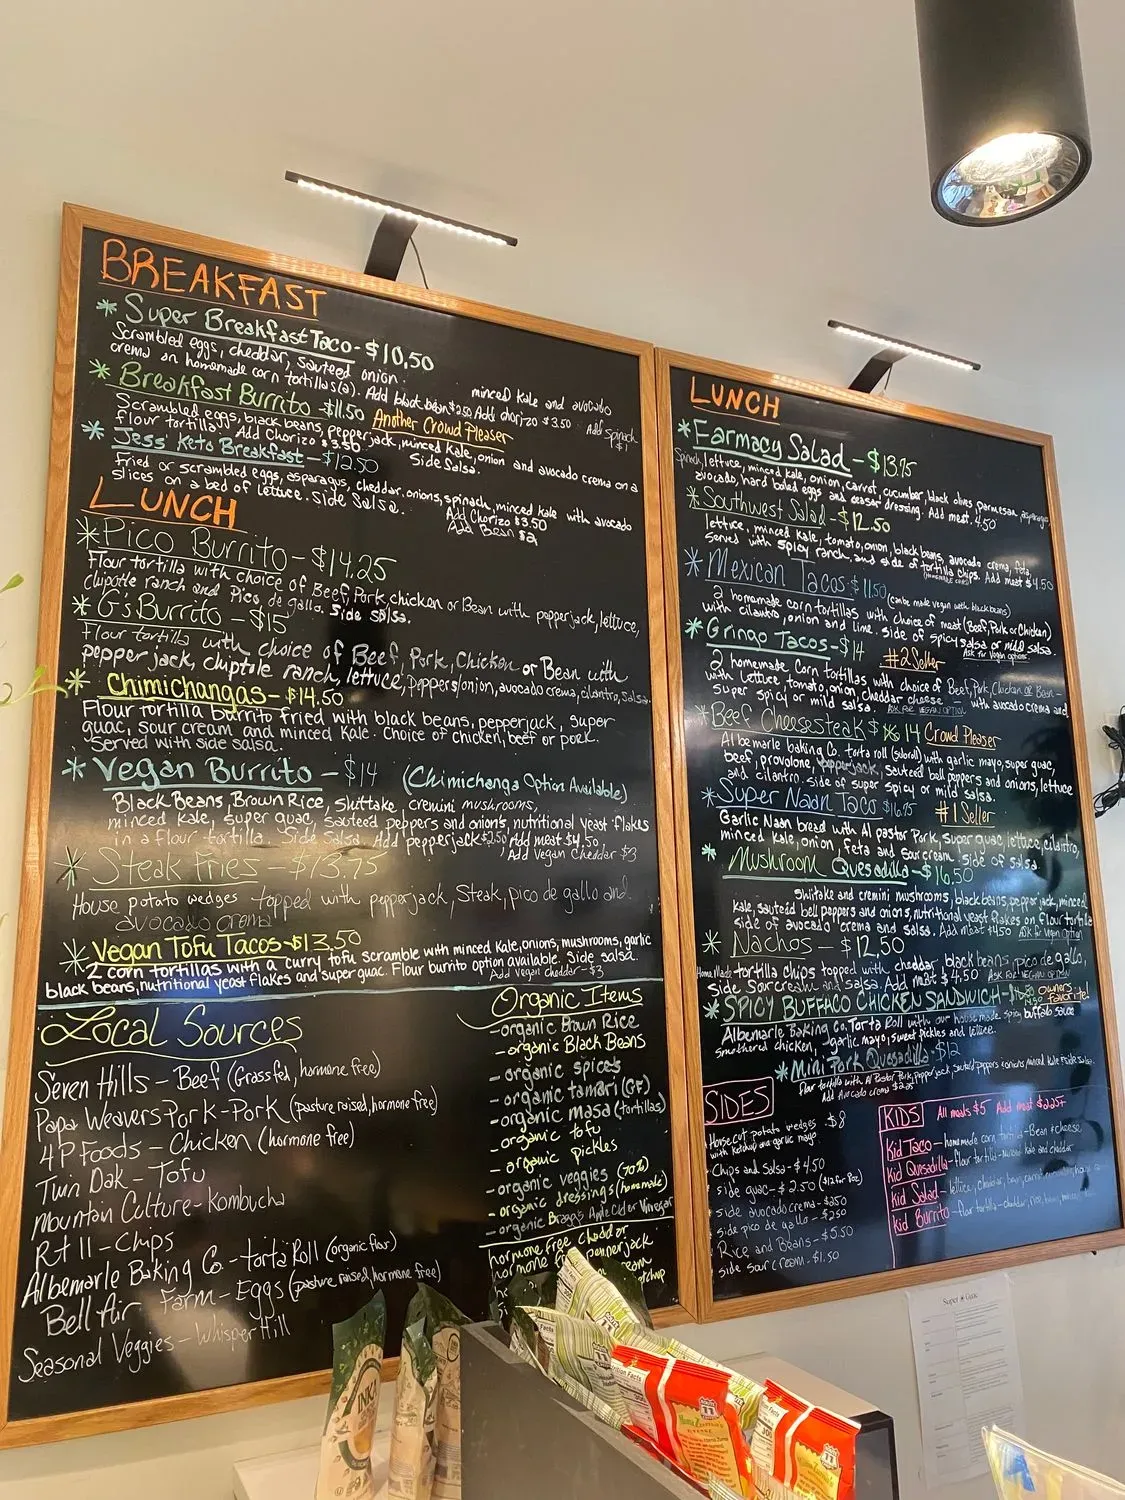 BREAKFAST
* Super Breakfast Taco - $10.50
Scrambled eggs, cheddar, sauteed onion, minced kale and avocado
crema on homemade corn tortillas(2). Add black bean $2.50 Add chorizo $3.50 Add Spinach $1
* Breakfast Burrito - $11.50 Another Crowd Pleaser
Scrambled eggs, black beans, pepperjack, minced kale, onion and avocado crema on a
flour tortilla. Add Chorizo $3.50 Side Salsa.
* Jess' Keto Breakfast - $12.50
Fried or scrambled eggs, asparagus, cheddar, onions, spinach, minced kale with avocado
slices on a bed of letuce. Side Salsa. Add Chorizo $3.50
Add Bean $2
LUNCH
* Pico Burrito - $14.25
Flour tortilla with choice of Beef, Pork, chicken or Bean with pepperjack, lettuce,
chipotle ranch and Pico de gallo. Side salsa.
* G's Burrito - $15
Flour tortilla with choice of Beef, Pork, Chicken or Bean with
pepper jack, chiptole ranch, lettuce, peppers/onion, avocado crema, cilantro, salsa.
* Chimichangas - $14.50
Flour tortilla burrito fried with black beans, pepperjack, super
guac, sour cream and minced kale. Choice of chicken, beef or pork.
Served with side salsa.
* Vegan Burrito - $14 (Chimichanga Option Available)
Black Beans, Brown Rice, shittake, cremini mushrooms,
minced kale, super guac, sauteed peppers and onions, nutritional yeast flakes
in a flour tortilla. Side Salsa. Add pepperjack $2.50 Add meat $4.50
Add Vegan Cheddar $3
* Steak Fries - $13.75
House potato wedges topped with pepperjack, Steak, pico de gallo and
avocado crema
* Vegan Tofu Tacos - $13.50
2 corn tortillas with a curry tofu scramble with minced kale, onions, mushrooms, garlic
black beans, nutritional yeast flakes and super guac. Flour burrito option available. Side salsa.
Add vegan cheddar - $3
Local Sources
Seven Hills - Beef (Grassfed, hormone free)
Papa Weavers Pork - Pork (pasture raised, hormone free)
4P Foods - Chicken (hormone free)
Twin Oak - Tofu
Mountain Culture - Kombucha
Rt 11 - Chips
Albemarle Baking Co - torta Roll (organic flour)
Bell Air Farm - Eggs (pasture raised, hormone free)
Seasonal Veggies - Whisper Hill
Organic Items
- organic Brown Rice
- organic Black Beans
- organic spices
- organic tamari (GF)
- organic masa (tortillas)
- organic tofu
- organic pickles
- organic veggies (70%)
- organic dressings (homemade)
- organic Bragg's Apple Cider Vinegar
hormone free cheddar
hormone free pepperjack
LUNCH
* Farmacy Salad - $13.75
Spinach, lettuce, minced kale, onion, carrot, cucumber, black olives, parmesan, asparagus,
avocado, hard boiled eggs and ceaser dressing. Add meat. 4.50
* Southwest Salad - $12.50
lettuce, minced kale, tomato, onion, black beans, avocado crema, feta,
served with spicy ranch and side of tortilla chips. Add meat $4.50
* Mexican Tacos $11.50 (can be made vegan with black beans)
2 homemade corn tortillas with choice of meat (Beef, Pork or Chicken)
with cilantro, onion and lime. Side of spicy salsa or mild salsa.
* Gringo Tacos - $14 #2 Seller Ask for Vegan options.
2 homemade Corn tortillas with choice of Beef, Pork, Chicken or Bean -
with Lettuce, tomato, onion, cheddar cheese - with avocado crema and
super spicy or mild salsa. ASK FOR VEGAN OPTION
* Beef Cheesesteak $14 Crowd Pleaser
Albemarle baking Co. torta roll (subroll) with garlic mayo, super guac,
beef, provolone, pepperjack, sauteed bell peppers and onions, lettuce
and cilantro. side of super spicy or mild salsa.
* Super Naan Taco $16.75 #1 Seller
Garlic Naan bread with Al pastor Pork, super guac, lettuce, cilantro,
minced kale, onion, feta and sour cream. Side of salsa
* Mushroom Quesadilla - $16.50
Shiitake and cremini mushrooms, black beans, pepper jack, minced
kale, sauteéd bell peppers and onions, nutritional yeast flakes on flour tortilla
side of avocado crema and salsa. Add meat $4.50 ASK for Vegan Option
* Nachos - $12.50
Home Made tortilla chips topped with cheddar, black beans, pico de gallo,
side sour cream and salsa. Add meat $4.50 ASK FOR VEGAN OPTION
* SPICY BUFFALO CHICKEN SANDWICH - Owners Favorite!
Albemarle Baking Co. Torta Roll with our house made spicy buffalo sauce
smothered chicken, garlic mayo, sweet pickles and lettuce.
* Mini Pork Quesadilla - $12
flour tortilla with Al Pastor Pork, pepperjack, sauteed peppers & onions, minced kale & side salsa.
Add Avocado crema $2.25
SIDES
House cut potato wedges - $8
with ketchup and garlic mayo
- Chips and Salsa - $4.50
* side guac - $2.50 ($12 for 8oz)
* side avocado crema - $2.50
* side pico de gallo - $2.50
* Rice and Beans - $5.50
* side sour cream - $1.50
KIDS All meals $5 Add meat $2.25+
Kid Taco - homemade corn tortilla - Bean & cheese
Kid Quesadilla - flour tortilla - minced kale and cheddar
Kid Salad - lettuce, cheddar, bean, carrot,
Kid Burrito - flour tortilla - cheddar, rice, beans,
Super * Guac